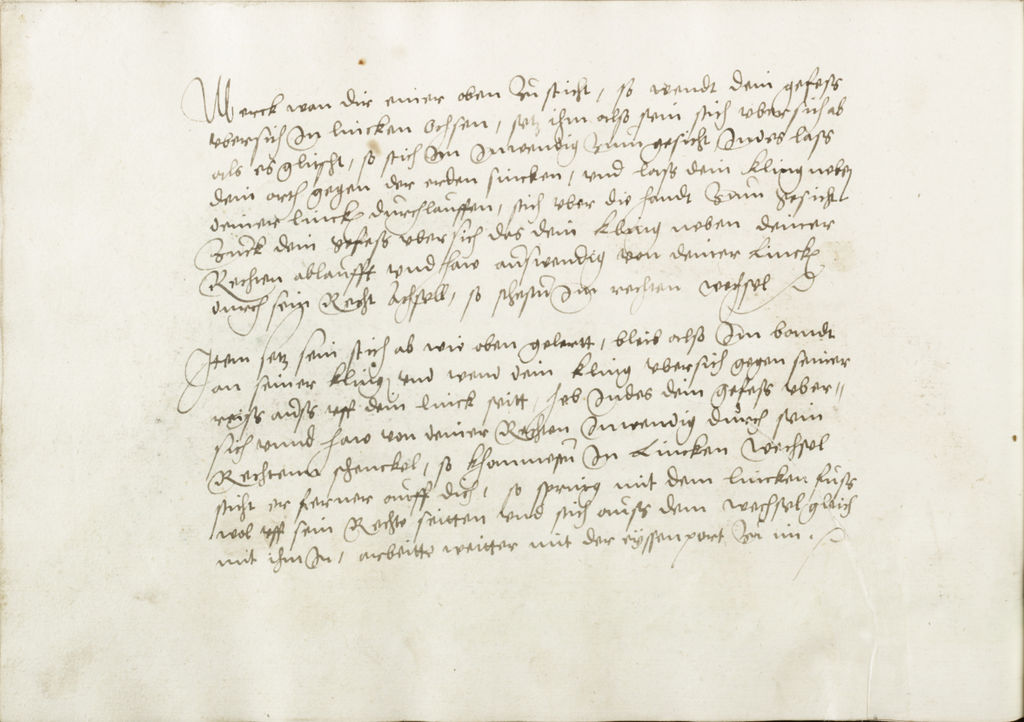 Merck wan dir einer oben zu sticht, so wendt dein gefess
vbersich In lincken Ochsen, setz ihm also sein stich vbersich ab
als es glitscht, so stich Im Inwendig zum gesicht, Indes lass
dein orth gegen der erden sincken, vnd lass dein kling neben
deiner linck durchlauffen, stich vber die handt zum gesicht
Zuck dein gefess vbersich das dein kling neben deiner
Rechten ablaufft vnd haw auswendig von deiner Linck
durch sein Recht Achsell, so stehstu Im rechten wechsel
Item setz sein stich ab wie oben gelertt, bleib also Im bandt
an seiner kling vnd wend dein kling vbersich gegen seiner
reiss auss vff dein linck seitt, heb Indes dein gefess vber-
sich vnnd haw von deiner Rechten Inwendig durch sein
Rechtenn schenckel, so khommestu In Lincken Wechsel
sticht er ferner auff dich, so spring mit dem lincken fuss
wol vff sein Rechte seitten vnd stich auss dem wechsel gleich
mit ihm In, arbeitte weitter mit der eyssenport zu im.